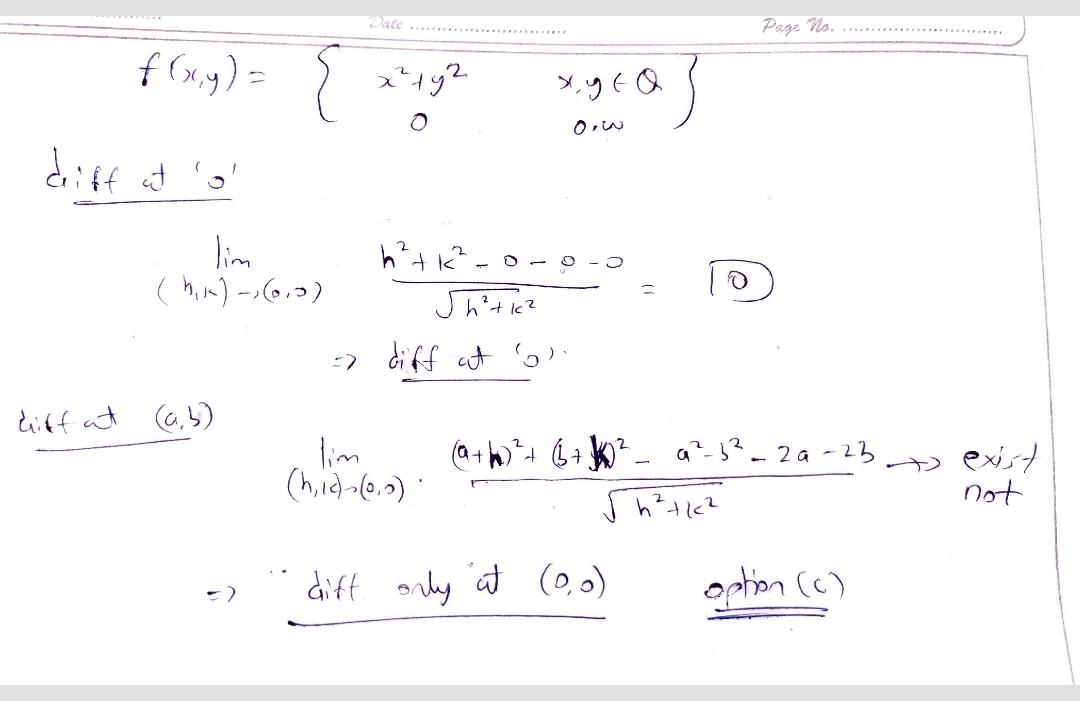 Date ............................ Page No. ............................
f(x,y) = { x²+y² x,y ∈ Q }
0 o.w
diff at '0'
lim h²+k²-0-0-0
(h,k)→(0,0) √h²+k² = 0
=> diff at '0'.
diff at (a,b)
lim (a+h)²+(b+k)²- a²-b²-2a-2b → exist
(h,k)→(0,0) √h²+k² not
=> diff only at (0,0) option (c)